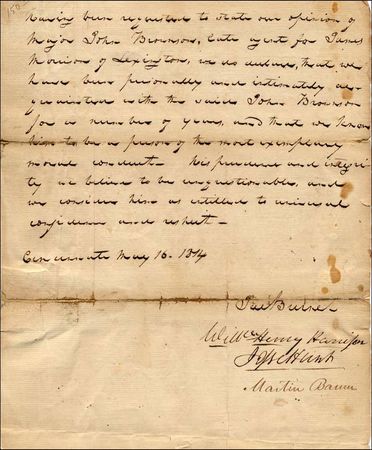 Having been requested to state our opinion of
Major John Bronson, late agent for James
Morison of Lexington, we do declare, that we
have been personally and intimately ac-
quainted with the said John Bronson
for a number of years, and that we know
him to be a person of the most exemplary
moral conduct - his prudence and integri
ty we believe to be unquestionable, and
we consider him as entitled to universal
confidence and respect -
Cincinnati May 16. 1814
Jac Burnet
Willm Henry Harrison
Jesse Hunt
Martin Baum